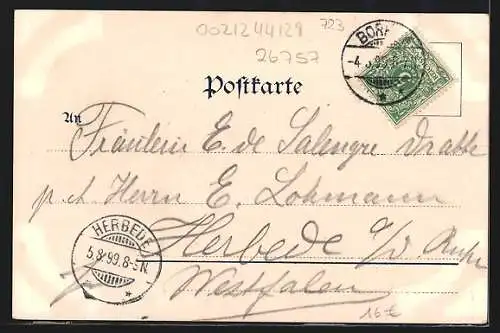 0021244129
723
26757
BOR
-4.8.99
Postkarte
An
Fräulein E. de Salengre
p. ad. Herrn E. Lohmann
HERBEDE
5.8.99.8-9N.
Herbede a/d. Ruhr
Westfalen
16€